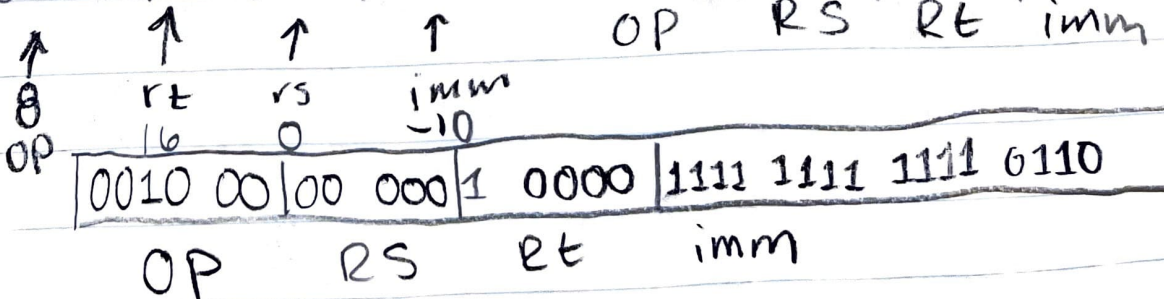 OP RS Rt imm
8 rt rs imm
OP 16 0 -10
0010 00|00 000|1 0000|1111 1111 1111 0110
OP RS Rt imm